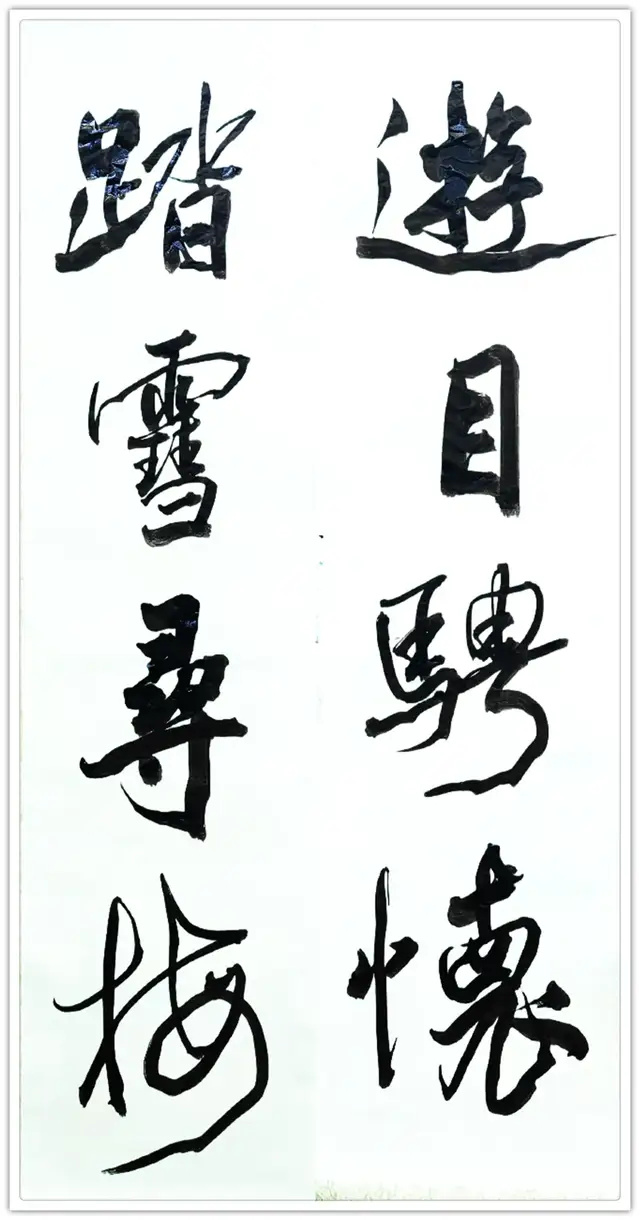 遊目騁懷
踏雪尋梅